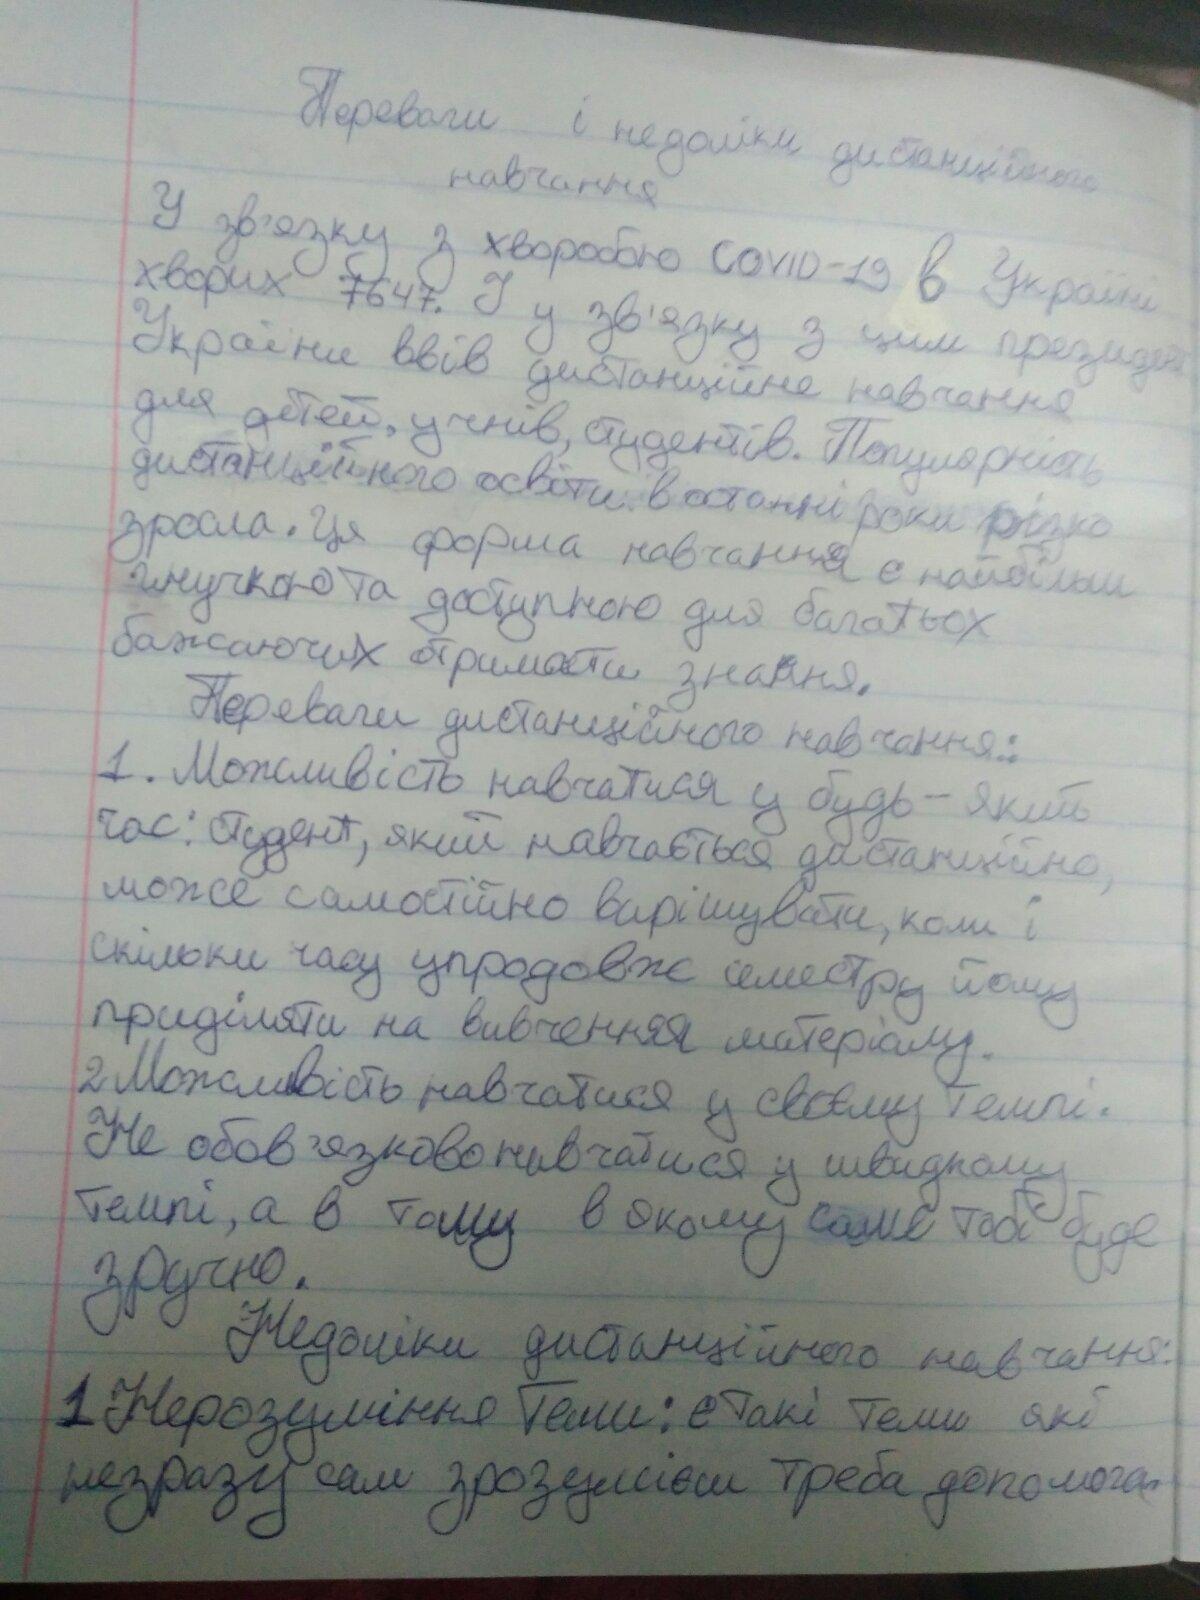 Переваги і недоліки дистанційного
навчання
У зв'язку з хворобою COVID-19 в Україні
хворих 7647. І у зв'язку з цим президент
України ввів дистанційне навчання
для дітей, учнів, студентів. Популярність
дистанційного освіти в останні роки різко
зросла. Ця форма навчання є найбільш
гнучкою та доступною для багатьох
бажаючих отримати знання.
Переваги дистанційного навчання:
1. Можливість навчатися у будь-який
час: студент, який навчається дистанційно,
може самостійно вирішувати, коли і
скільки часу упродовж семестру йому
приділяти на вивчення матеріалу.
2 Можливість навчатися у своєму темпі.
Не обов'язково навчатися у швидкому
темпі, а в тому в якому саме тобі буде
зручно.
Недоліки дистанційного навчання:
1 Нерозуміння теми: є такі теми які
незразу сам зрозумієш треба допомога.